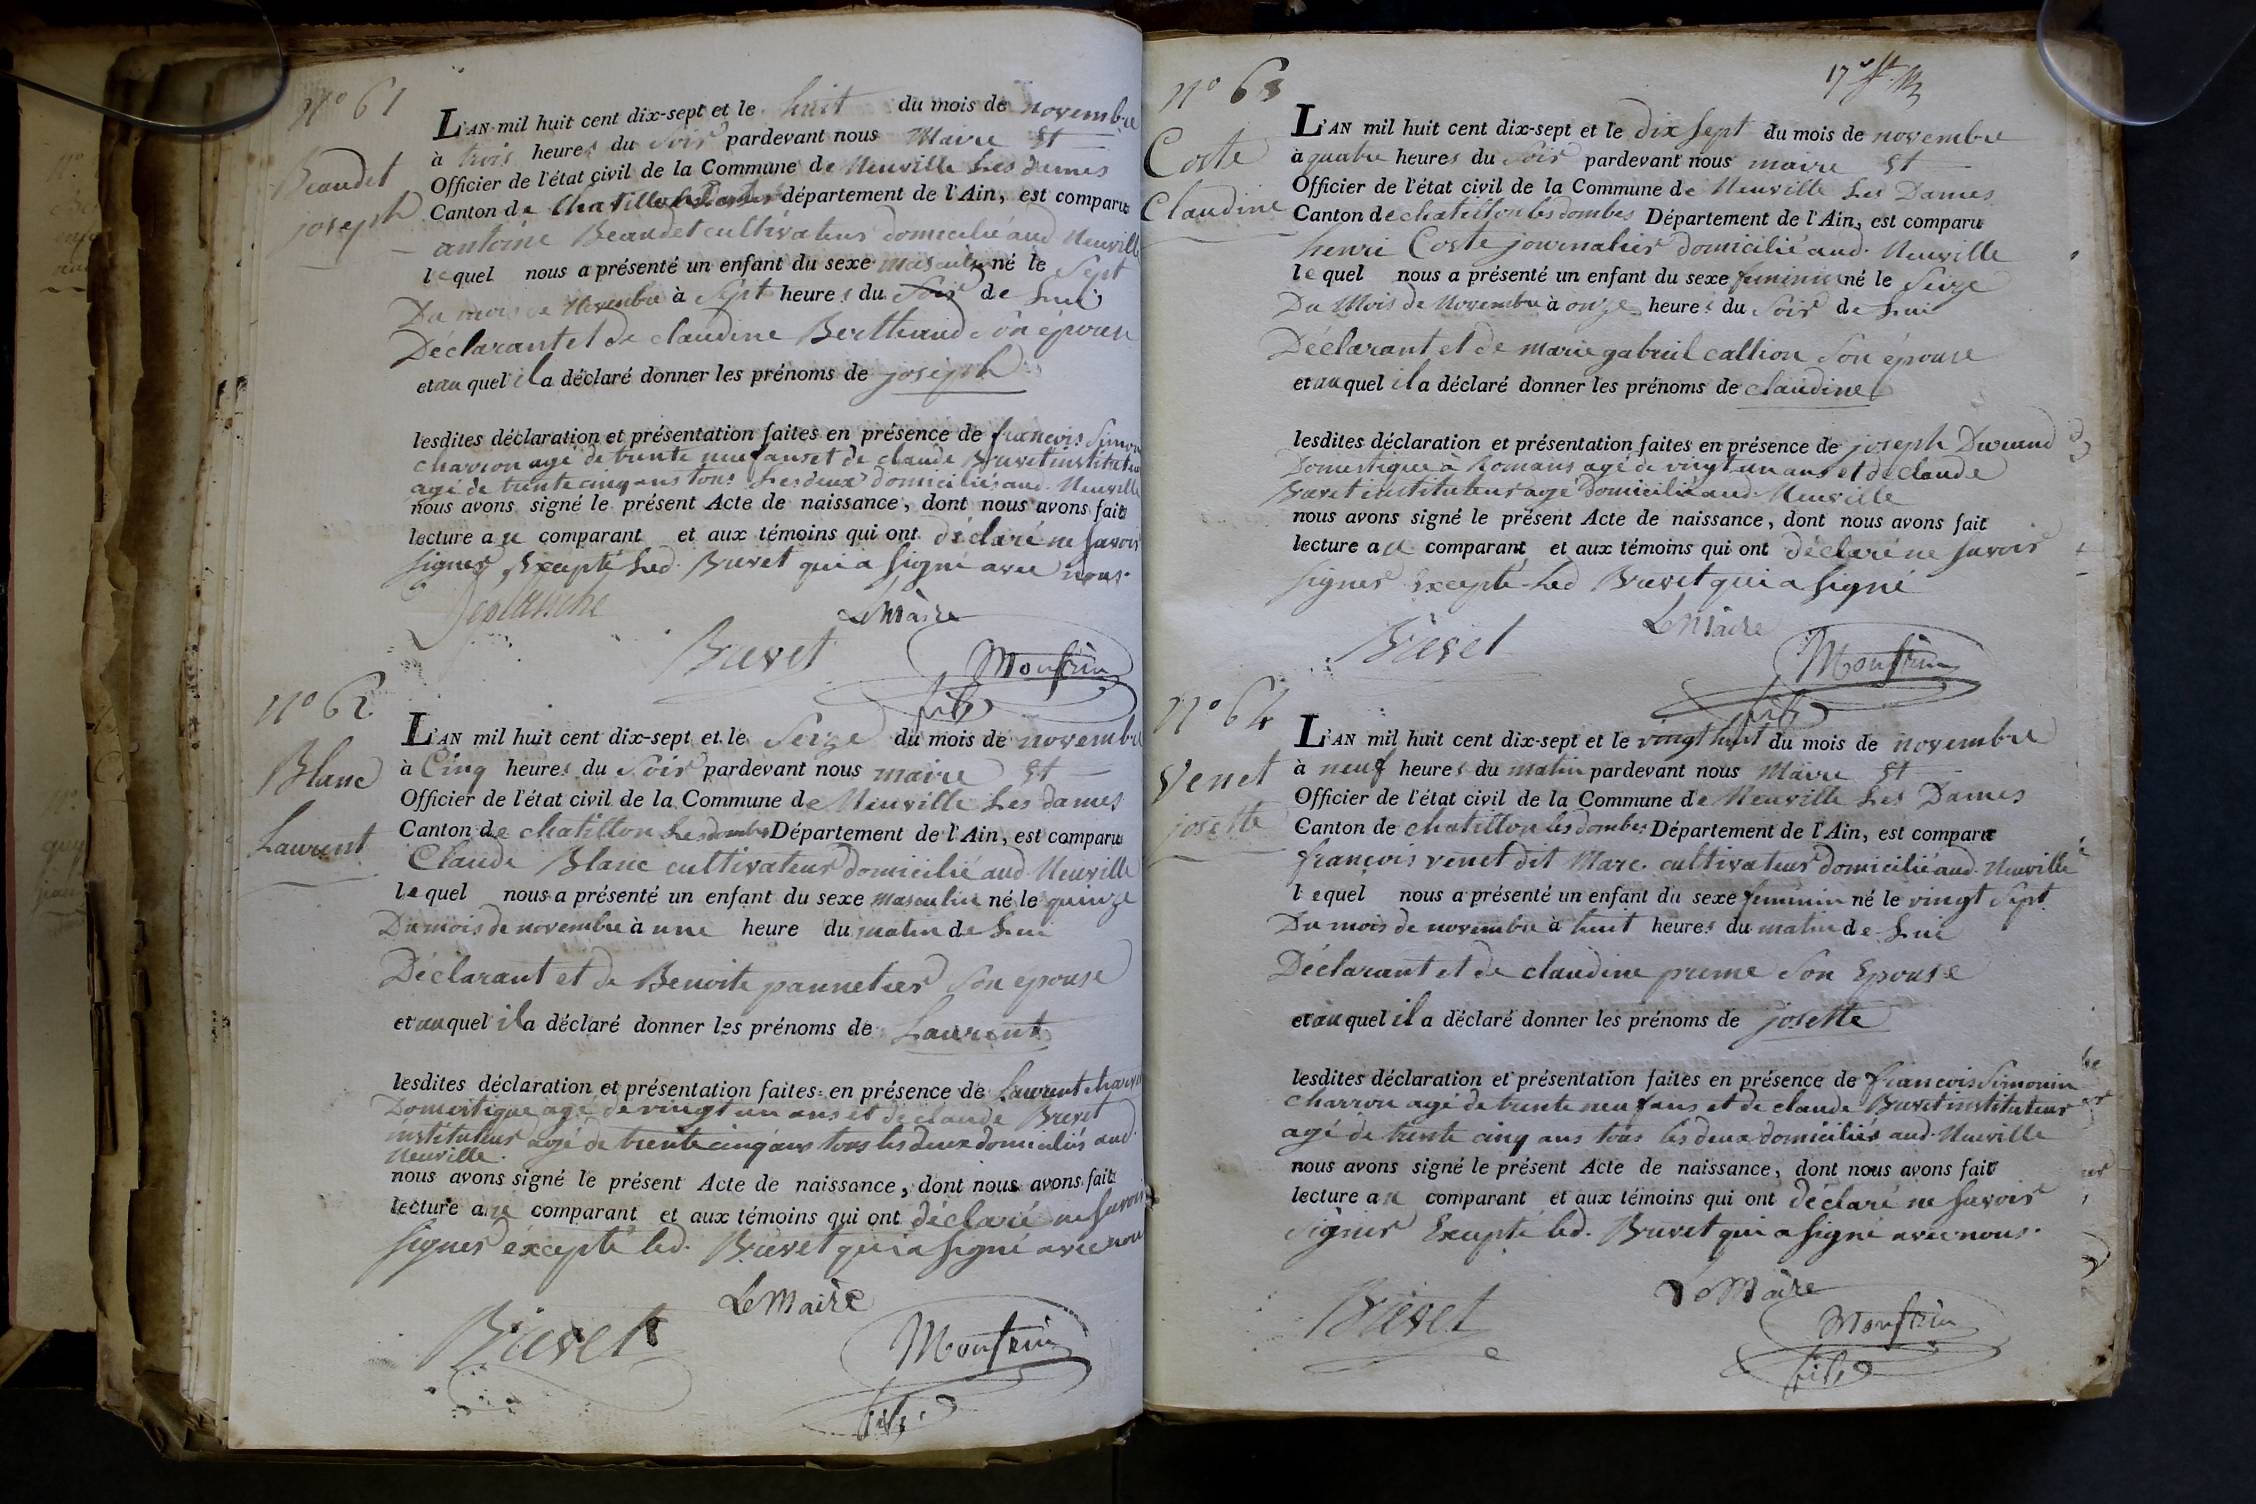 N° 61
Beaudet
joseph
L'AN mil huit cent dix-sept et le huit du mois de novembre
à trois heures du Soir pardevant nous Maire Et
Officier de l'état civil de la Commune de Neuville Les Dames
Canton de Chatillon les Dombes département de l'Ain, est comparu
antoine Beaudet cultivateur domicilié aud Neuville
lequel nous a présenté un enfant du sexe masculin né le Sept
Du mois de Novembre à Sept heures du Soir de Lui
Déclarant et de claudine Berthaud Son épouse
et au quel il a déclaré donner les prénoms de joseph
lesdites déclaration et présentation faites en présence de françois Simonin
charron agé de trente neuf ans et de claude Buvet instituteur
agé de trente cinq ans tous Les deux domiciliés aud. Neuville
nous avons signé le présent Acte de naissance, dont nous avons fait
lecture au comparant et aux témoins qui ont déclaré ne savoir
signer Excepté Led. Buvet qui a signé avec nous.
Le Maire
Buvet
Monfrin
fils
N° 62
Blanc
Laurent
L'AN mil huit cent dix-sept et le Seize du mois de novembre
à Cinq heures du Soir pardevant nous maire Et
Officier de l'état civil de la Commune de Neuville Les Dames
Canton de chatillon Les dombes Département de l'Ain, est comparu
Claude Blanc cultivateur domicilié aud Neuville
lequel nous a présenté un enfant du sexe masculin né le quinze
Du mois de novembre à une heure du matin de Lui
Déclarant et de Benoite pannetier Son epouse
et au quel il a déclaré donner les prénoms de Laurent
lesdites déclaration et présentation faites en présence de Laurent
Domestique agé de vingt un ans et de claude Buvet
instituteur agé de trente cinq ans tous les deux domiciliés aud.
Neuville.
nous avons signé le présent Acte de naissance, dont nous avons fait
lecture au comparant et aux témoins qui ont déclaré ne savoir
signer éxcepté led. Buvet qui a signé avec nous
Le Maire
Buvet
Monfrin
fils
17
N° 63
Coste
Claudine
L'AN mil huit cent dix-sept et le dix Sept du mois de novembre
à quatre heures du Soir pardevant nous maire Et
Officier de l'état civil de la Commune de Neuville Les Dames
Canton de chatillon les dombes Département de l'Ain, est comparu
henri Coste journalier domicilié aud. Neuville
lequel nous a présenté un enfant du sexe feminin né le Seize
Du Mois de Novembre à onze heures du Soir de Lui
Déclarant et de marie gabriel callion Son épouse
et au quel il a déclaré donner les prénoms de claudine
lesdites déclaration et présentation faites en présence de joseph Durand
Domestique à Romans agé de vingt un ans et de claude
Buvet instituteur agé Domicilié aud. Neuville
nous avons signé le présent Acte de naissance, dont nous avons fait
lecture au comparant et aux témoins qui ont déclaré ne savoir
signer Excepté Led Buvet qui a signé
Le Maire
Buvet
Monfrin
fils
N° 64
Venet
josette
L'AN mil huit cent dix-sept et le vingt huit du mois de novembre
à neuf heures du matin pardevant nous Maire Et
Officier de l'état civil de la Commune de Neuville Les Dames
Canton de chatillon les dombes Département de l'Ain, est comparu
françois venet dit Marc cultivateur domicilié aud. Neuville
lequel nous a présenté un enfant du sexe feminin né le vingt Sept
Du mois de novembre à huit heures du matin de Lui
Déclarant et de claudine preme Son Epouse
et au quel il a déclaré donner les prénoms de josette
lesdites déclaration et présentation faites en présence de francois Simonin
charron agé de trente neuf ans et de claude Buvet instituteur
agé de trente cinq ans tous les deux domiciliés aud. Neuville
nous avons signé le présent Acte de naissance, dont nous avons fait
lecture au comparant et aux témoins qui ont déclaré ne savoir
signer Excepté led. Buvet qui a signé avec nous.
Le Maire
Buvet
Monfrin
fils